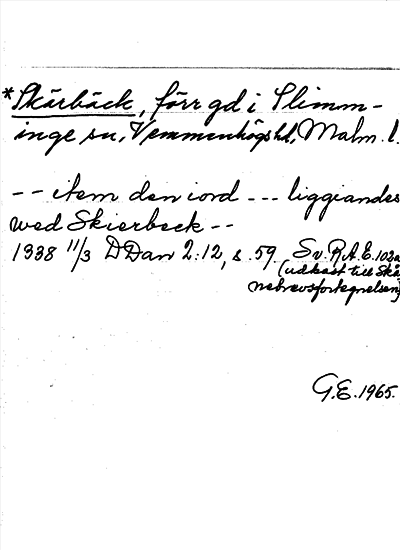 *Skärbäck, förr gd i Slimm-
inge sn, Vemmenhögs hd, Malm. l.
-- item den iord --- liggiandes
wed Skierbeck --
1338 11/3 DDan 2:12, s. 59 Sv. R.A. E. 103a
(udkast till Skå
nebrevsfortegnelsen)
G.E. 1965.